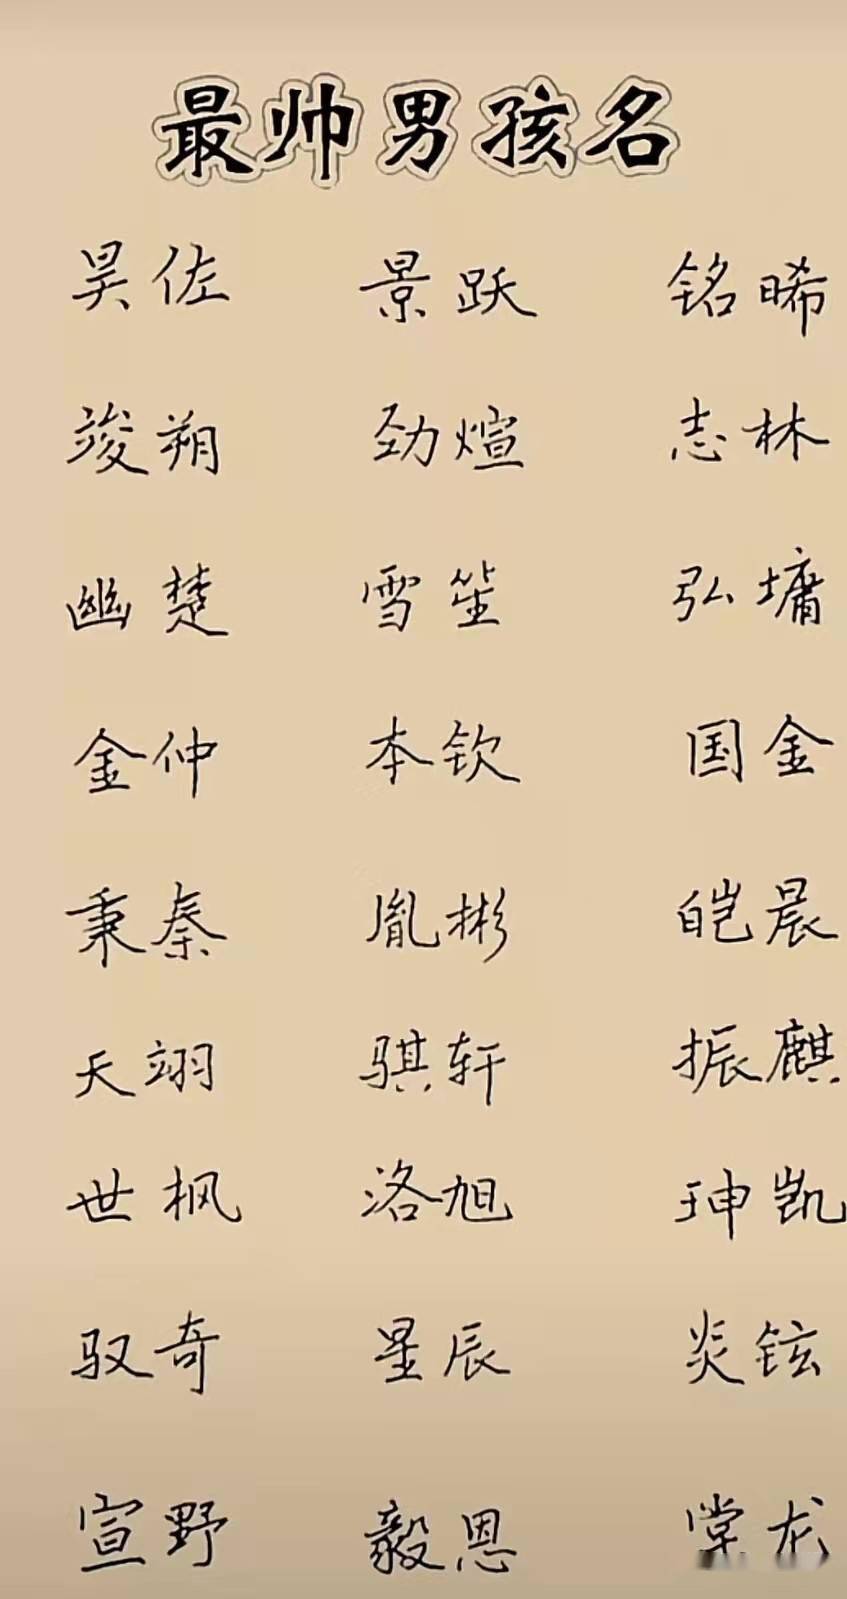 最帅男孩名
昊佐 景跃 铭晞
竣朔 劲煊 志林
幽楚 雪笙 弘墉
金仲 本钦 国金
秉秦 胤彬 皑晨
天翊 骐轩 振麒
世枫 洛旭 珅凯
驭奇 星辰 炎铉
宣野 毅恩 龙